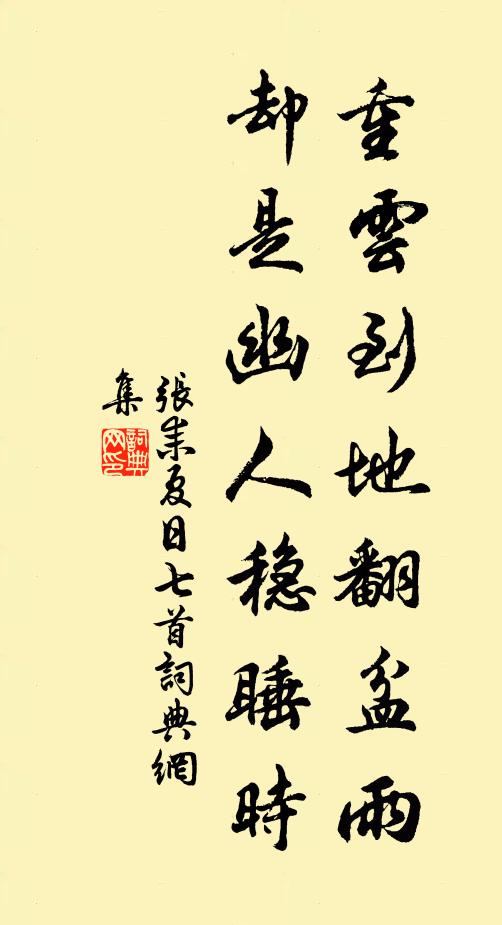 重雲到地翻盆雨
却是幽人穩睡時
張耒夏日七首詞典網
集
詞典
网印